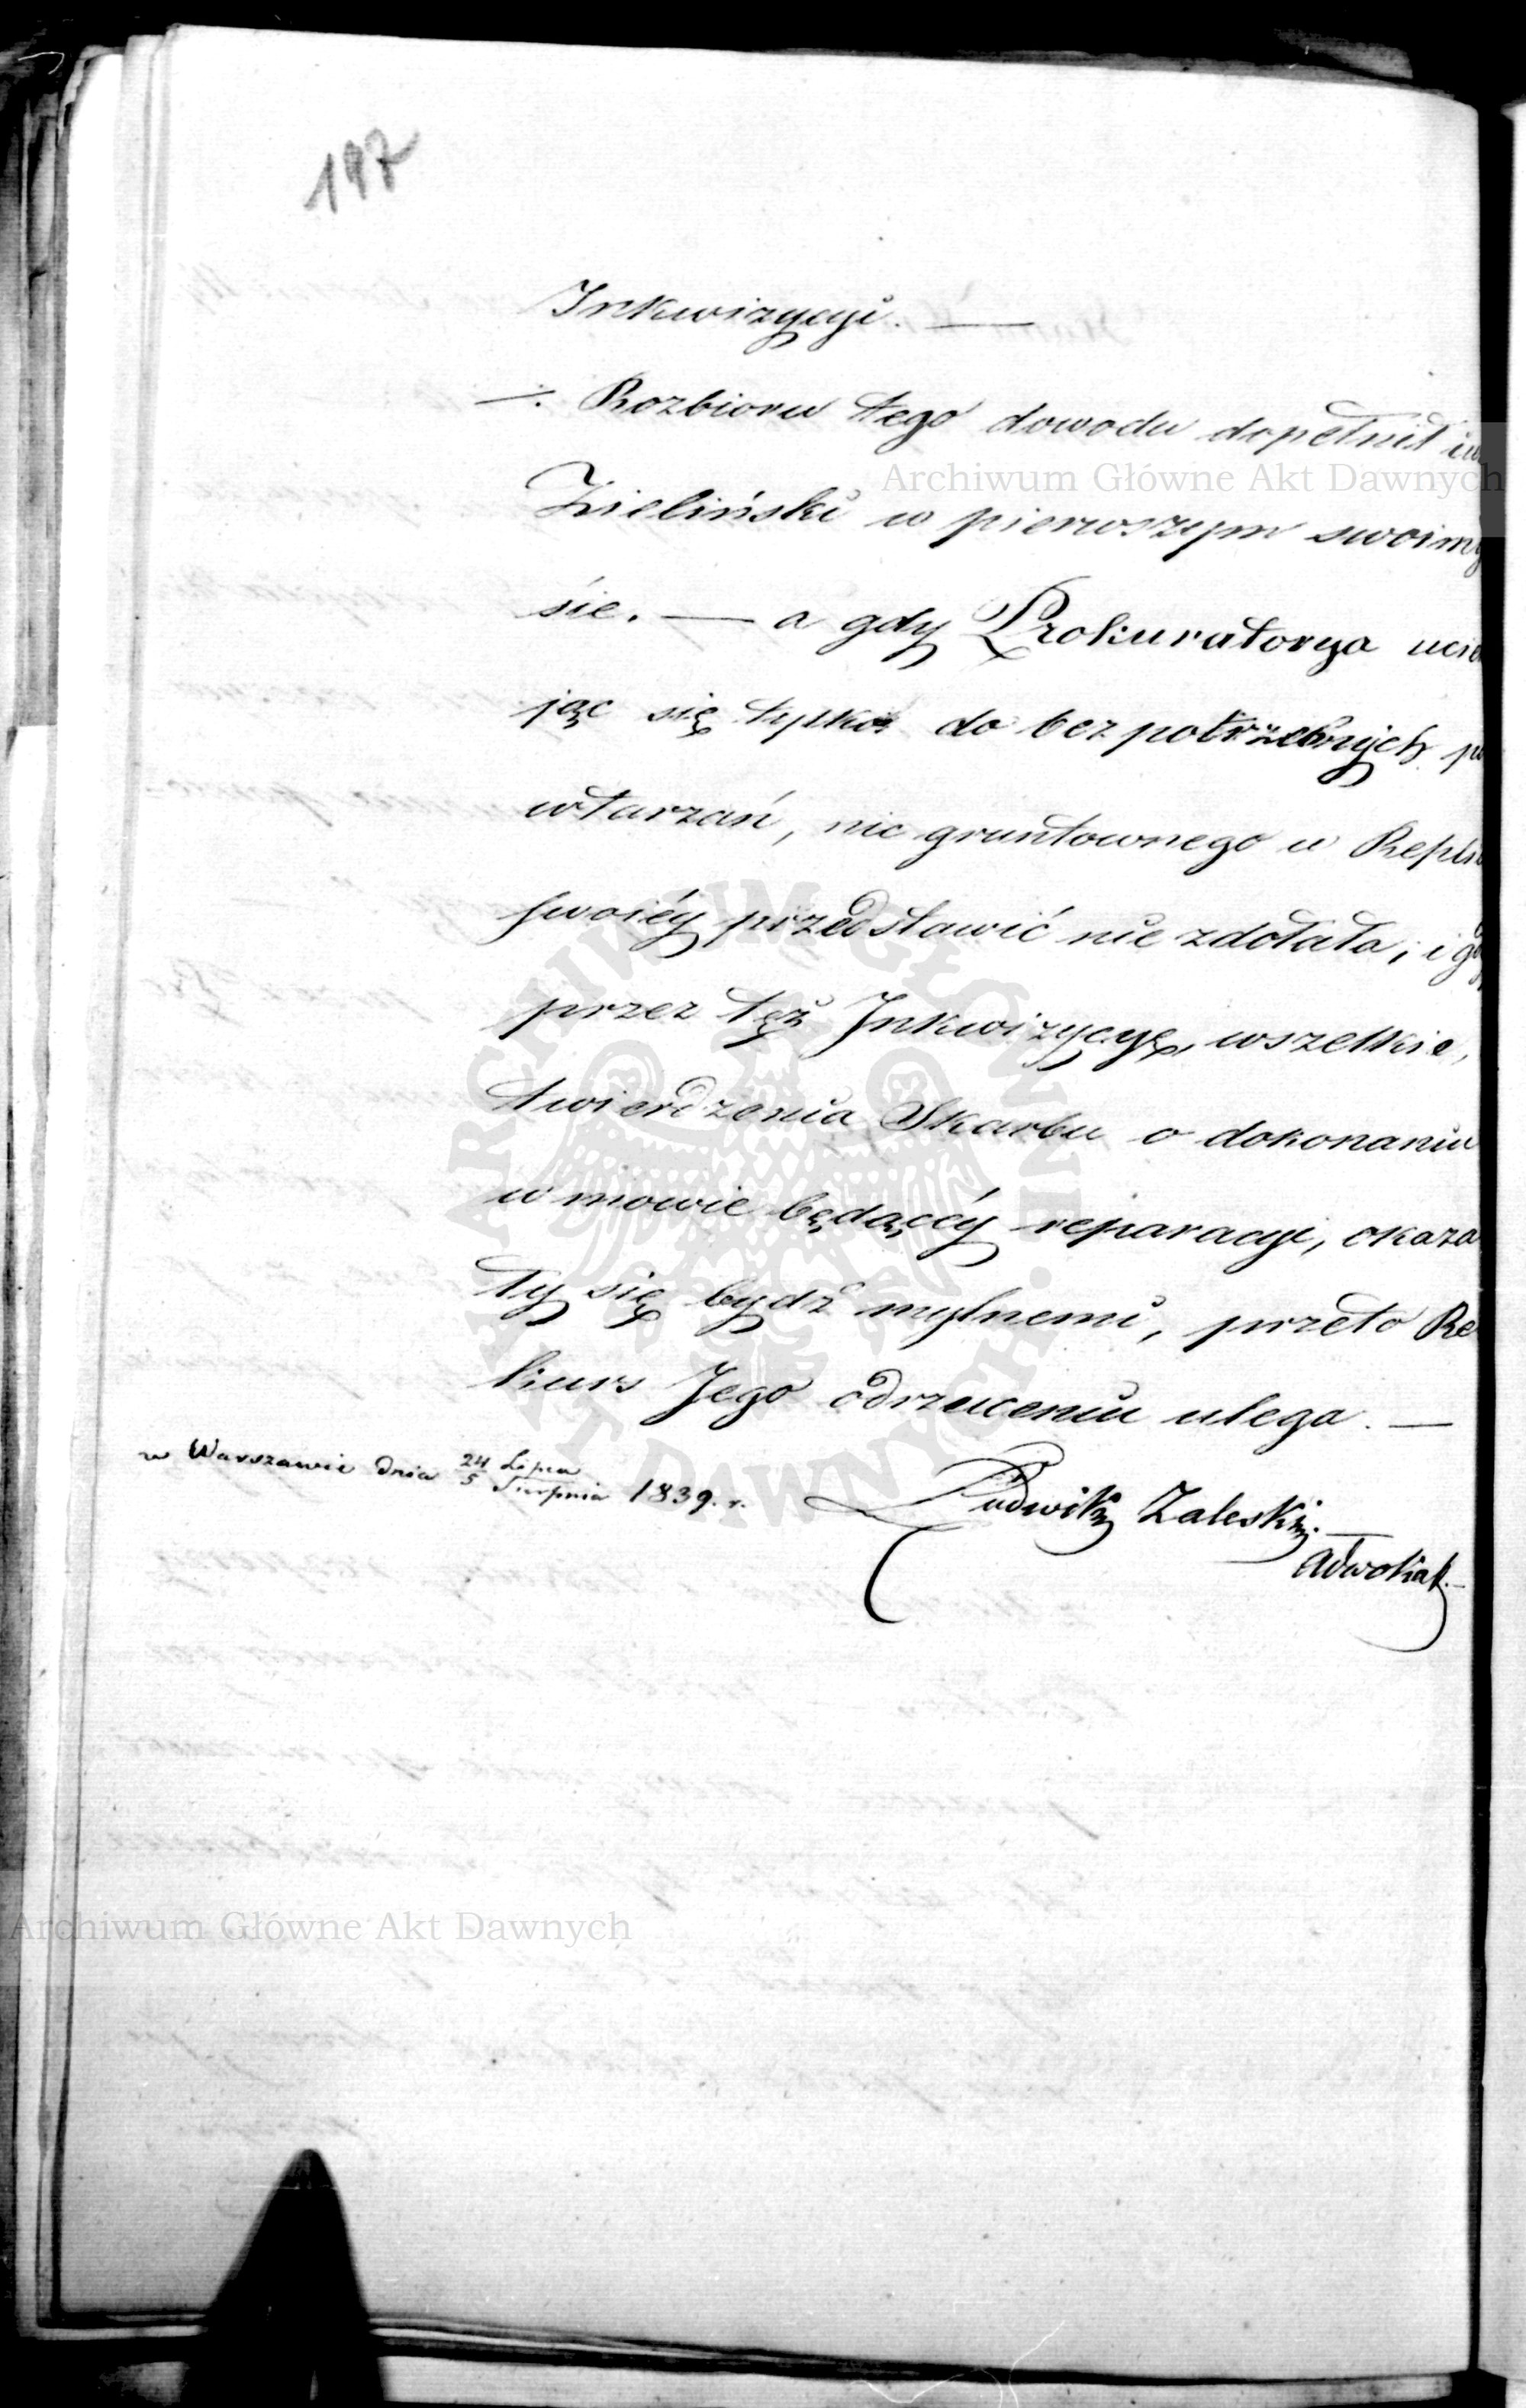 197
Inkwizycyi. —
—. Rozbioru tego dowodu dopełnił iu
Archiwum Główne Akt Dawnych
Zieliński w pierwszym swoim
sie. — a gdy Prokuratorya ucie
jąc się tylko do bezpotrzebnych p
wtarzań, nic gruntownego w Repli
swoiéy przedstawić nie zdołała, i g
przez też Inkwizycyę, wszelkie,
twierdzenia Skarbu o dokonaniu
w mowie będącéy reparacyi, okaza
ły się bydź mylnemi, przeto Re
kurs Jego odrzuceniu ulega. —
w Warszawie dnia 24 Lipca
5 Sierpnia 1839. r.
Ludwik Zaleski. —
Adwokat. —
ARCHIWUM GŁÓWNE AKT DAWNYCH.
Archiwum Główne Akt Dawnych